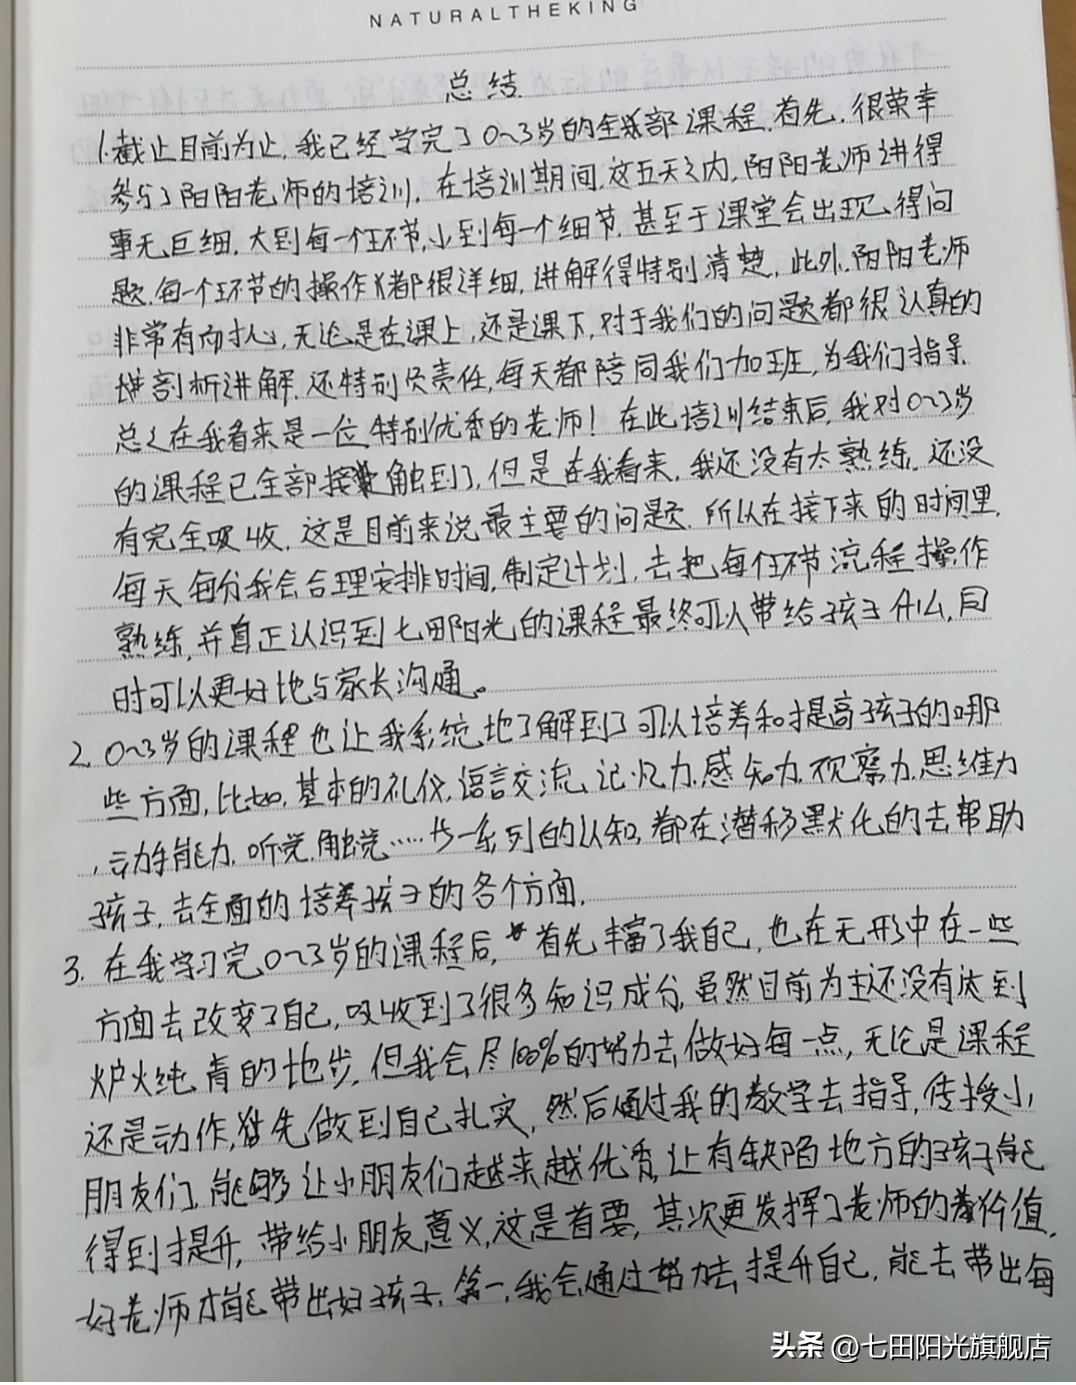 NATURALTHEKING
总结
1.截止目前为止,我已经学完了0~3岁的全部课程.首先.很荣幸
参与了阳阳老师的培训.在培训期间,这五天之内,阳阳老师讲得
事无巨细.大到每一个环节,小到每一个细节.甚至于课堂会出现得问
题.每一个环节的操作都很详细,讲解得特别清楚.此外.阳阳老师
非常有耐心,无论是在课上,还是课下,对于我们的问题都很认真的
剖析讲解.还特别负责任,每天都陪同我们加班,为我们指导.
总之在我看来是一位特别优秀的老师!在此培训结束后,我对0~3岁
的课程已全部接触到了,但是在我看来,我还没有太熟练,还没
有完全吸收.这是目前来说最主要的问题.所以在接下来的时间里,
每天每分我会合理安排时间,制定计划,去把每个环节流程操作
熟练,并真正认识到七田阳光的课程最终可以带给孩子什么,同
时可以更好地与家长沟通。
2.0~3岁的课程也让我系统地了解到了可以培养和提高孩子的哪
些方面,比如,基本的礼仪,语言交流、记忆力.感知力.观察力.思维力
,动手能力.听觉.触觉……等一系列的认知,都在潜移默化的去帮助
孩子,去全面的培养孩子的各个方面.
3.在我学习完0~3岁的课程后,首先丰富了我自己,也在无形中在一些
方面去改变了自己,吸收到了很多知识成分,虽然目前为主还没有达到
炉火纯青的地步,但我会尽100%的努力去做好每一点,无论是课程
还是动作,首先做到自己扎实,然后通过我的教学去指导,传授小
朋友们,能够让小朋友们越来越优秀,让有缺陷地方的孩子能
得到提升,带给小朋友意义,这是首要,其次更发挥了老师的价值.
好老师才能带出好孩子,第一,我会通过努力去提升自己,能去带出每
头条 @七田阳光旗舰店